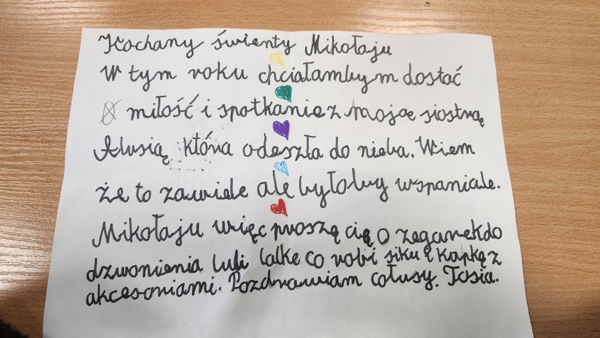 Kochany świenty Mikołaju
W tym roku chciałambym dostać
miłość i spotkanie z mojoe siostrą
Alusią która odeszła do nieba. Wiem
że to zawiele ale byłoby wspaniale.
Mikołaju więc proszę cię o zegarek do
dzwonienia lub lalke co robi siku i kupkę z
akcesoriami. Pozdrawiam całusy. Tosia.